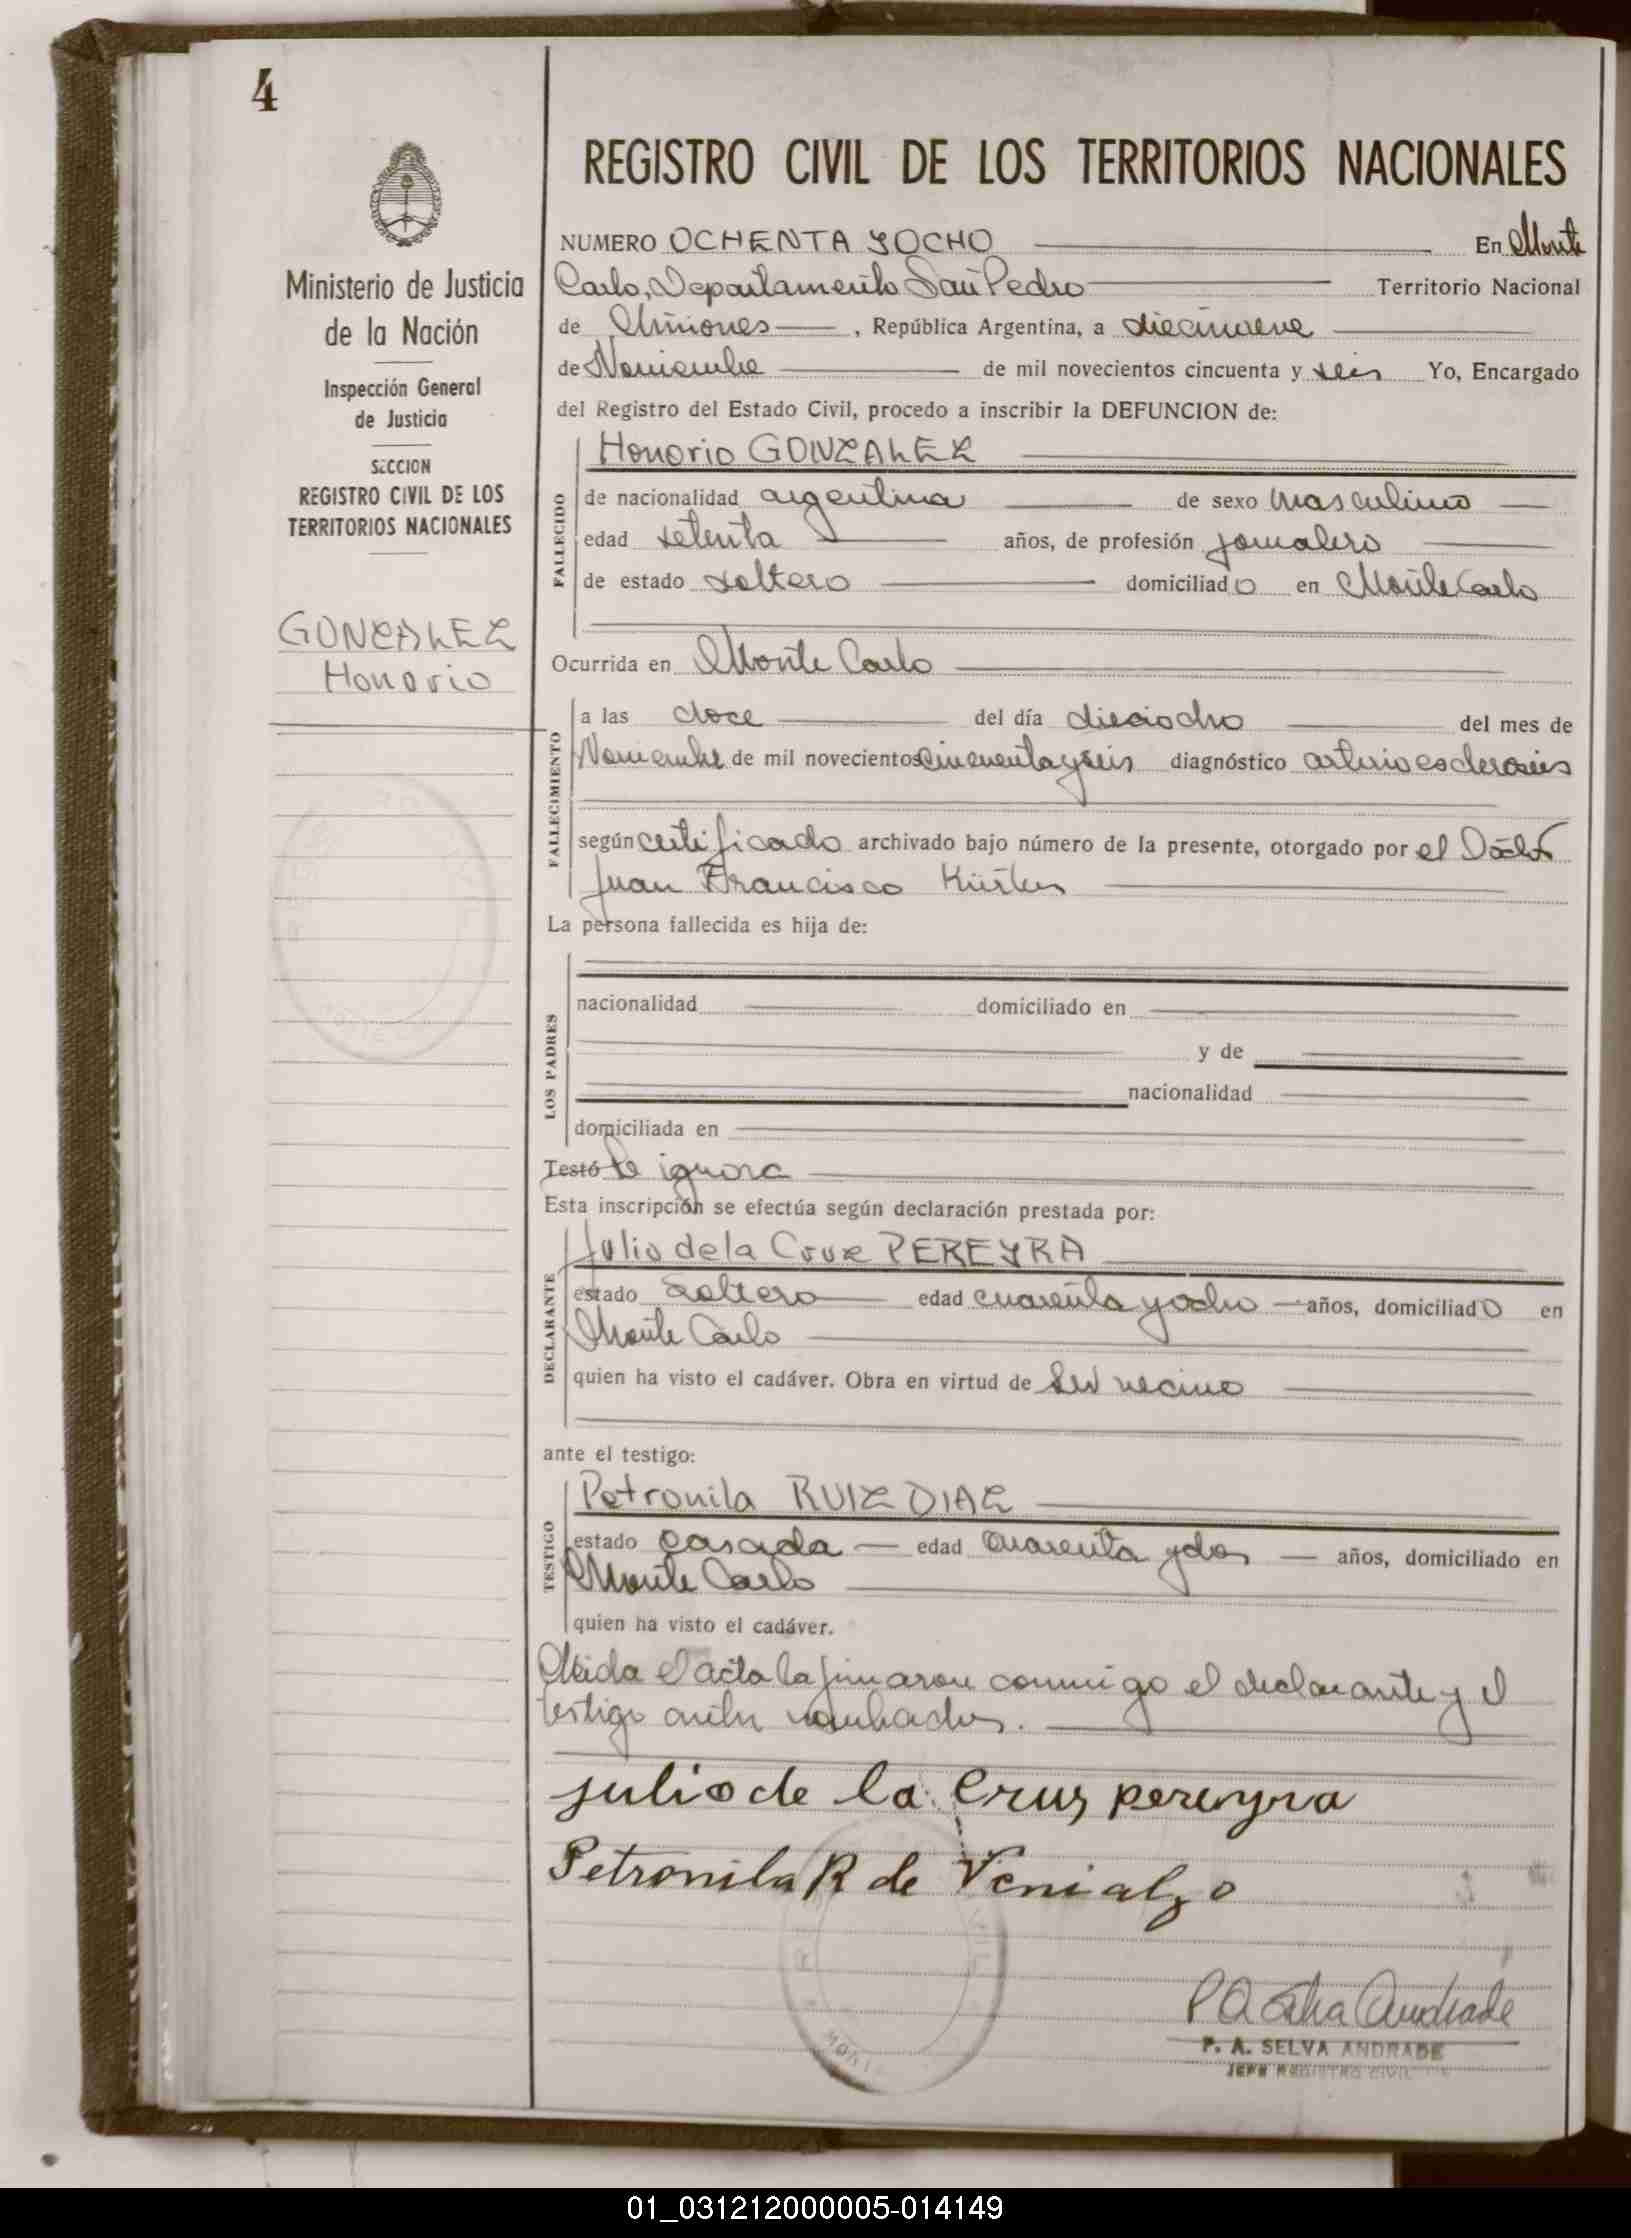 4
Ministerio de Justicia
de la Nación
Inspección General
de Justicia
SECCION
REGISTRO CIVIL DE LOS
TERRITORIOS NACIONALES
GONZALEZ
Honorio
REGISTRO CIVIL DE LOS TERRITORIOS NACIONALES
NUMERO OCHENTA Y OCHO En Monte
Carlo, Departamento San Pedro Territorio Nacional
de Misiones, República Argentina, a diecinueve
de Noviembre de mil novecientos cincuenta y seis Yo, Encargado
del Registro del Estado Civil, procedo a inscribir la DEFUNCION de:
Honorio GONZALEZ
FALLECIDO
de nacionalidad argentina de sexo masculino
edad setenta años, de profesión jornalero
de estado soltero domiciliado en Monte Carlo
Ocurrida en Monte Carlo
FALLECIMIENTO
a las doce del día dieciocho del mes de
Noviembre de mil novecientos cincuenta y seis diagnóstico arterioesclerosis
según certificado archivado bajo número de la presente, otorgado por el Doctor
Juan Francisco
La persona fallecida es hija de:
LOS PADRES
nacionalidad domiciliado en
y de
nacionalidad
domiciliada en
Testó Se ignora
Esta inscripción se efectúa según declaración prestada por:
Julio de la Cruz PEREYRA
DECLARANTE
estado Soltero edad cuarenta y ocho años, domiciliado en
Monte Carlo
quien ha visto el cadáver. Obra en virtud de ser vecino
ante el testigo:
Petronila RUIZ DIAZ
TESTIGO
estado casada edad cuarenta y dos años, domiciliado en
Monte Carlo
quien ha visto el cadáver.
Leida el acta la firmaron conmigo el declarante y el
testigo antes nombrados.
julio de la Cruz pereyra
Petronila R de Venialgo
P A Selva Andrade
P. A. SELVA ANDRADE
JEFE REGISTRO CIVIL
01_031212000005-014149